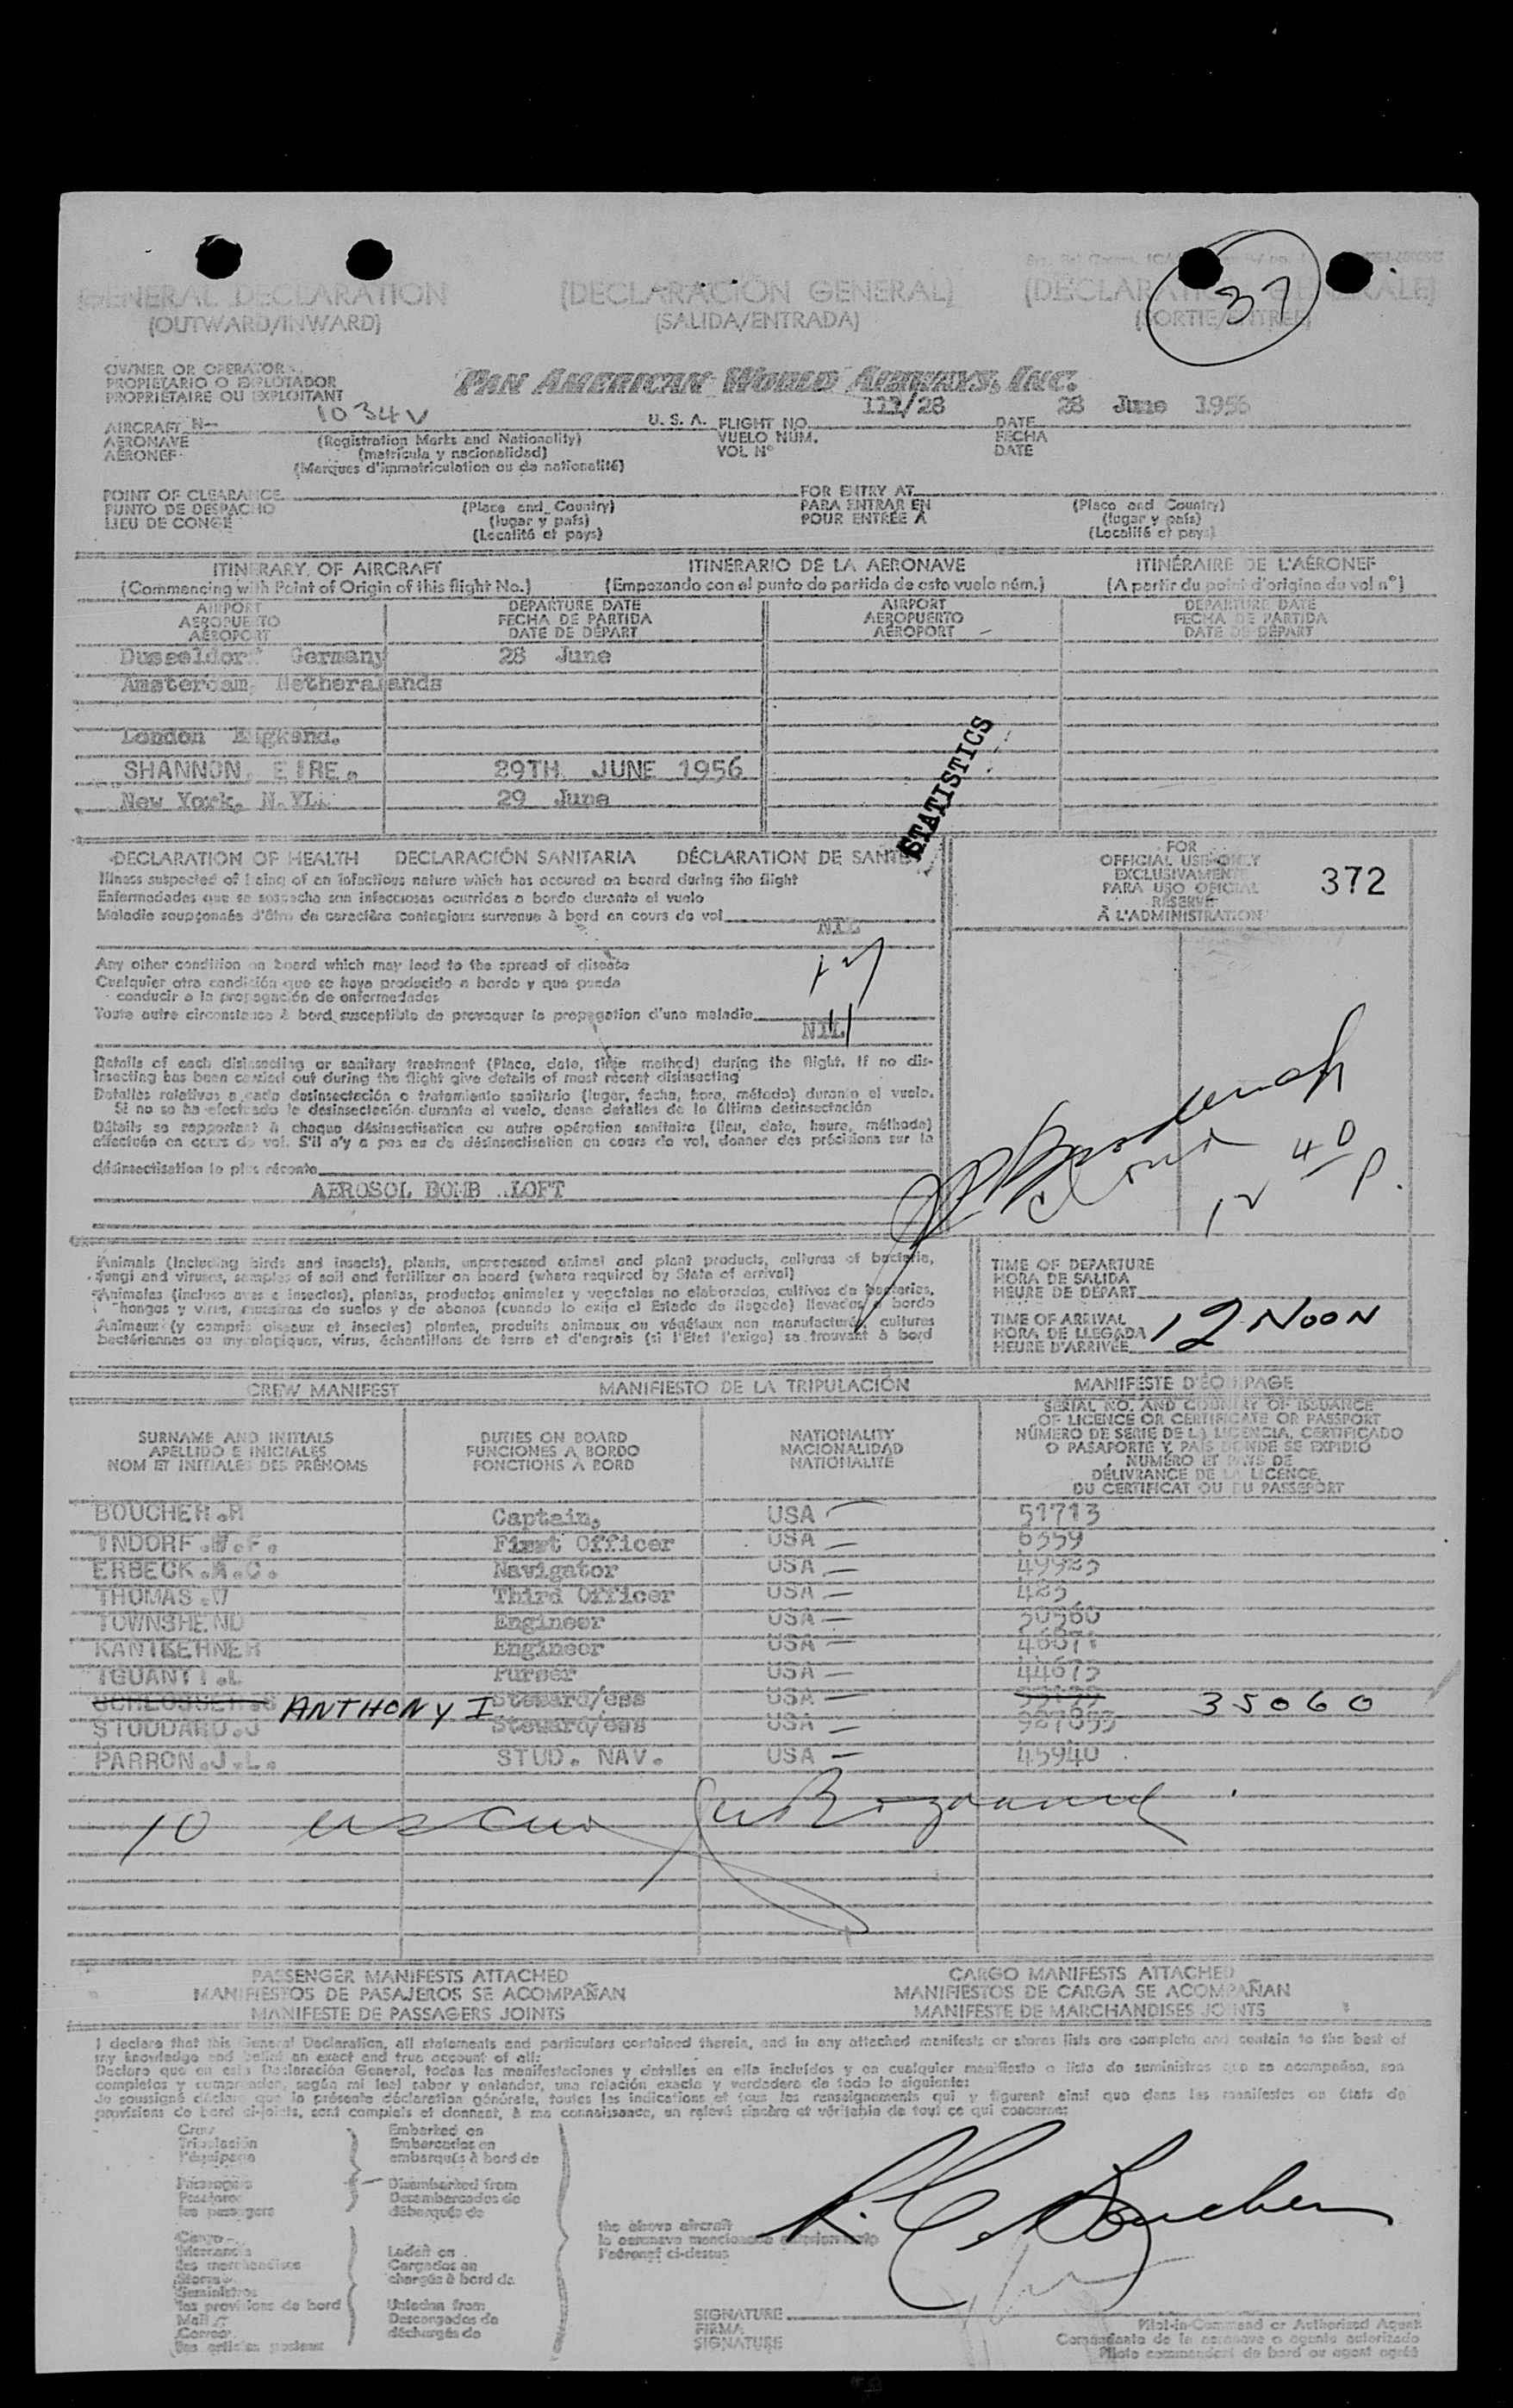 37
GENERAL DECLARATION (DECLARACIÓN GENERAL) (DÉCLARATION GÉNÉRALE)
(OUTWARD/INWARD) (SALIDA/ENTRADA) (SORTIE/ENTRÉE)
OWNER OR OPERATOR
PROPIETARIO O EXPLOTADOR
PROPRIÉTAIRE OU EXPLOITANT
PAN AMERICAN WORLD AIRWAYS, INC.
AIRCRAFT N- 1034V U. S. A. FLIGHT NO. /28 DATE 28 June 1956
AERONAVE (Registration Marks and Nationality) VUELO NÚM. FECHA
AÉRONEF (matrícula y nacionalidad) VOL Nº DATE
(Marques d'immatriculation ou de nationalité)
POINT OF CLEARANCE FOR ENTRY AT
PUNTO DE DESPACHO (Place and Country) PARA ENTRAR EN (Place and Country)
LIEU DE CONGÉ (lugar y país) POUR ENTRÉE À (lugar y país)
(Localité et pays) (Localité et pays)
ITINERARY OF AIRCRAFT ITINERARIO DE LA AERONAVE ITINÉRAIRE DE L'AÉRONEF
(Commencing with Point of Origin of this flight No.) (Empezando con el punto de partida de este vuelo núm.) (A partir du point d'origine du vol nº)
AIRPORT DEPARTURE DATE AIRPORT DEPARTURE DATE
AEROPUERTO FECHA DE PARTIDA AEROPUERTO FECHA DE PARTIDA
AÉROPORT DATE DE DÉPART AÉROPORT DATE DE DÉPART
Dusseldorf Germany 28 June
Amsterdam, Netheralands
London
SHANNON. EIRE. 29TH JUNE 1956
New York. 29 June
STATISTICS
DECLARATION OF HEALTH DECLARACIÓN SANITARIA DÉCLARATION DE SANTÉ
Illness suspected of being of an infectious nature which has occured on board during the flight
Enfermedades que se sospecha son infecciosas ocurridas a bordo durante el vuelo
Maladie soupçonnée d'être de caractère contagieux survenue à bord en cours de vol NIL
Any other condition on board which may lead to the spread of disease
Cualquier otra condición que se haya producido a bordo y que pueda
conducir a la propagación de enfermedades
Toute autre circonstance à bord susceptible de provoquer la propagation d'une maladie NIL
Details of each disinsecting or sanitary treatment (Place, date, time method) during the flight. If no dis-
insecting has been carried out during the flight give details of most recent disinsecting
Detalles relativos a cada desinsectación o tratamiento sanitario (lugar, fecha, hora, método) durante el vuelo.
Si no se ha efectuado la desinsectación durante el vuelo, dense detalles de la última desinsectación
Détails se rapportant à chaque désinsectisation ou autre opération sanitaire (lieu, date, heure, méthode)
effectuée en cours de vol. S'il n'y a pas eu de désinsectisation en cours de vol, donner des précisions sur la
désinsectisation la plus récente
AEROSOL BOMB ALOFT
FOR
OFFICIAL USE ONLY
EXCLUSIVAMENTE
PARA USO OFICIAL
RÉSERVÉ
À L'ADMINISTRATION
372
12 40 P.
Animals (including birds and insects), plants, unprocessed animal and plant products, cultures of bacteria,
fungi and viruses, samples of soil and fertilizer on board (where required by State of arrival)
Animales (incluso aves e insectos), plantas, productos animales y vegetales no elaborados, cultivos de bacterias,
hongos y virus, muestras de suelos y de abonos (cuando lo exija el Estado de llegada) llevados a bordo
Animaux (y compris oiseaux et insectes) plantes, produits animaux ou végétaux non manufacturés, cultures
bactériennes ou mycologiques, virus, échantillons de terre et d'engrais (si l'État l'exige) se trouvant à bord
TIME OF DEPARTURE
HORA DE SALIDA
HEURE DE DÉPART
TIME OF ARRIVAL
HORA DE LLEGADA 12 NOON
HEURE D'ARRIVÉE
CREW MANIFEST MANIFIESTO DE LA TRIPULACIÓN MANIFESTE D'ÉQUIPAGE
SURNAME AND INITIALS DUTIES ON BOARD NATIONALITY SERIAL NO. AND COUNTRY OF ISSUANCE
APELLIDO E INICIALES FUNCIONES A BORDO NACIONALIDAD OF LICENCE OR CERTIFICATE OR PASSPORT
NOM ET INITIALES DES PRÉNOMS FONCTIONS À BORD NATIONALITÉ NÚMERO DE SERIE DE LA LICENCIA, CERTIFICADO
O PASAPORTE Y PAÍS DONDE SE EXPIDIÓ
NUMÉRO ET PAYS DE
DÉLIVRANCE DE LA LICENCE,
DU CERTIFICAT OU DU PASSEPORT
BOUCHER.R Captain, USA 51713
INDORF.W.F. First Officer USA 6359
ERBECK. Navigator USA
THOMAS. Third Officer USA 485
TOWNSHEND Engineer USA 50560
Engineer USA
IGUANTI.L Purser USA 44675
ANTHONY I Steward/ess USA 35060
STODDARD.J Steward/ess USA
PARRON.J.L. STUD. NAV. USA 45940
10
PASSENGER MANIFESTS ATTACHED CARGO MANIFESTS ATTACHED
MANIFIESTOS DE PASAJEROS SE ACOMPAÑAN MANIFIESTOS DE CARGA SE ACOMPAÑAN
MANIFESTE DE PASSAGERS JOINTS MANIFESTE DE MARCHANDISES JOINTS
I declare that this General Declaration, all statements and particulars contained therein, and in any attached manifests or stores lists are complete and contain to the best of
my knowledge and belief an exact and true account of all:
Declaro que en esta Declaración General, todas las manifestaciones y detalles en ella incluídos y en cualquier manifiesto o lista de suministros que se acompañan, son
completos y comprenden, según mi leal saber y entender, una relación exacta y verdadera de todo lo siguiente:
Je soussigné déclare que la présente déclaration générale, toutes les indications et tous les renseignements qui y figurent ainsi que dans les manifestes ou états de
provisions de bord ci-joints, sont complets et donnent, à ma connaissance, un relevé sincère et véritable de tout ce qui concerne:
Crew Embarked on
Tripulación Embarcados en
l'équipage embarqués à bord de
Passengers Disembarked from
Pasajeros Desembarcados de
les passagers débarqués de
the above aircraft
la aeronave mencionada
l'aéronef ci-dessus
Cargo
Mercancía Laden on
des marchandises Cargados en
Stores chargés à bord de
Suministros
les provisions de bord Unladen from
Mail Descargados de
Correo déchargés de
R. C. Boucher
SIGNATURE Pilot-in-Command or Authorized Agent
FIRMA Comandante de la aeronave o agente autorizado
SIGNATURE Pilote commandant de bord ou agent agréé